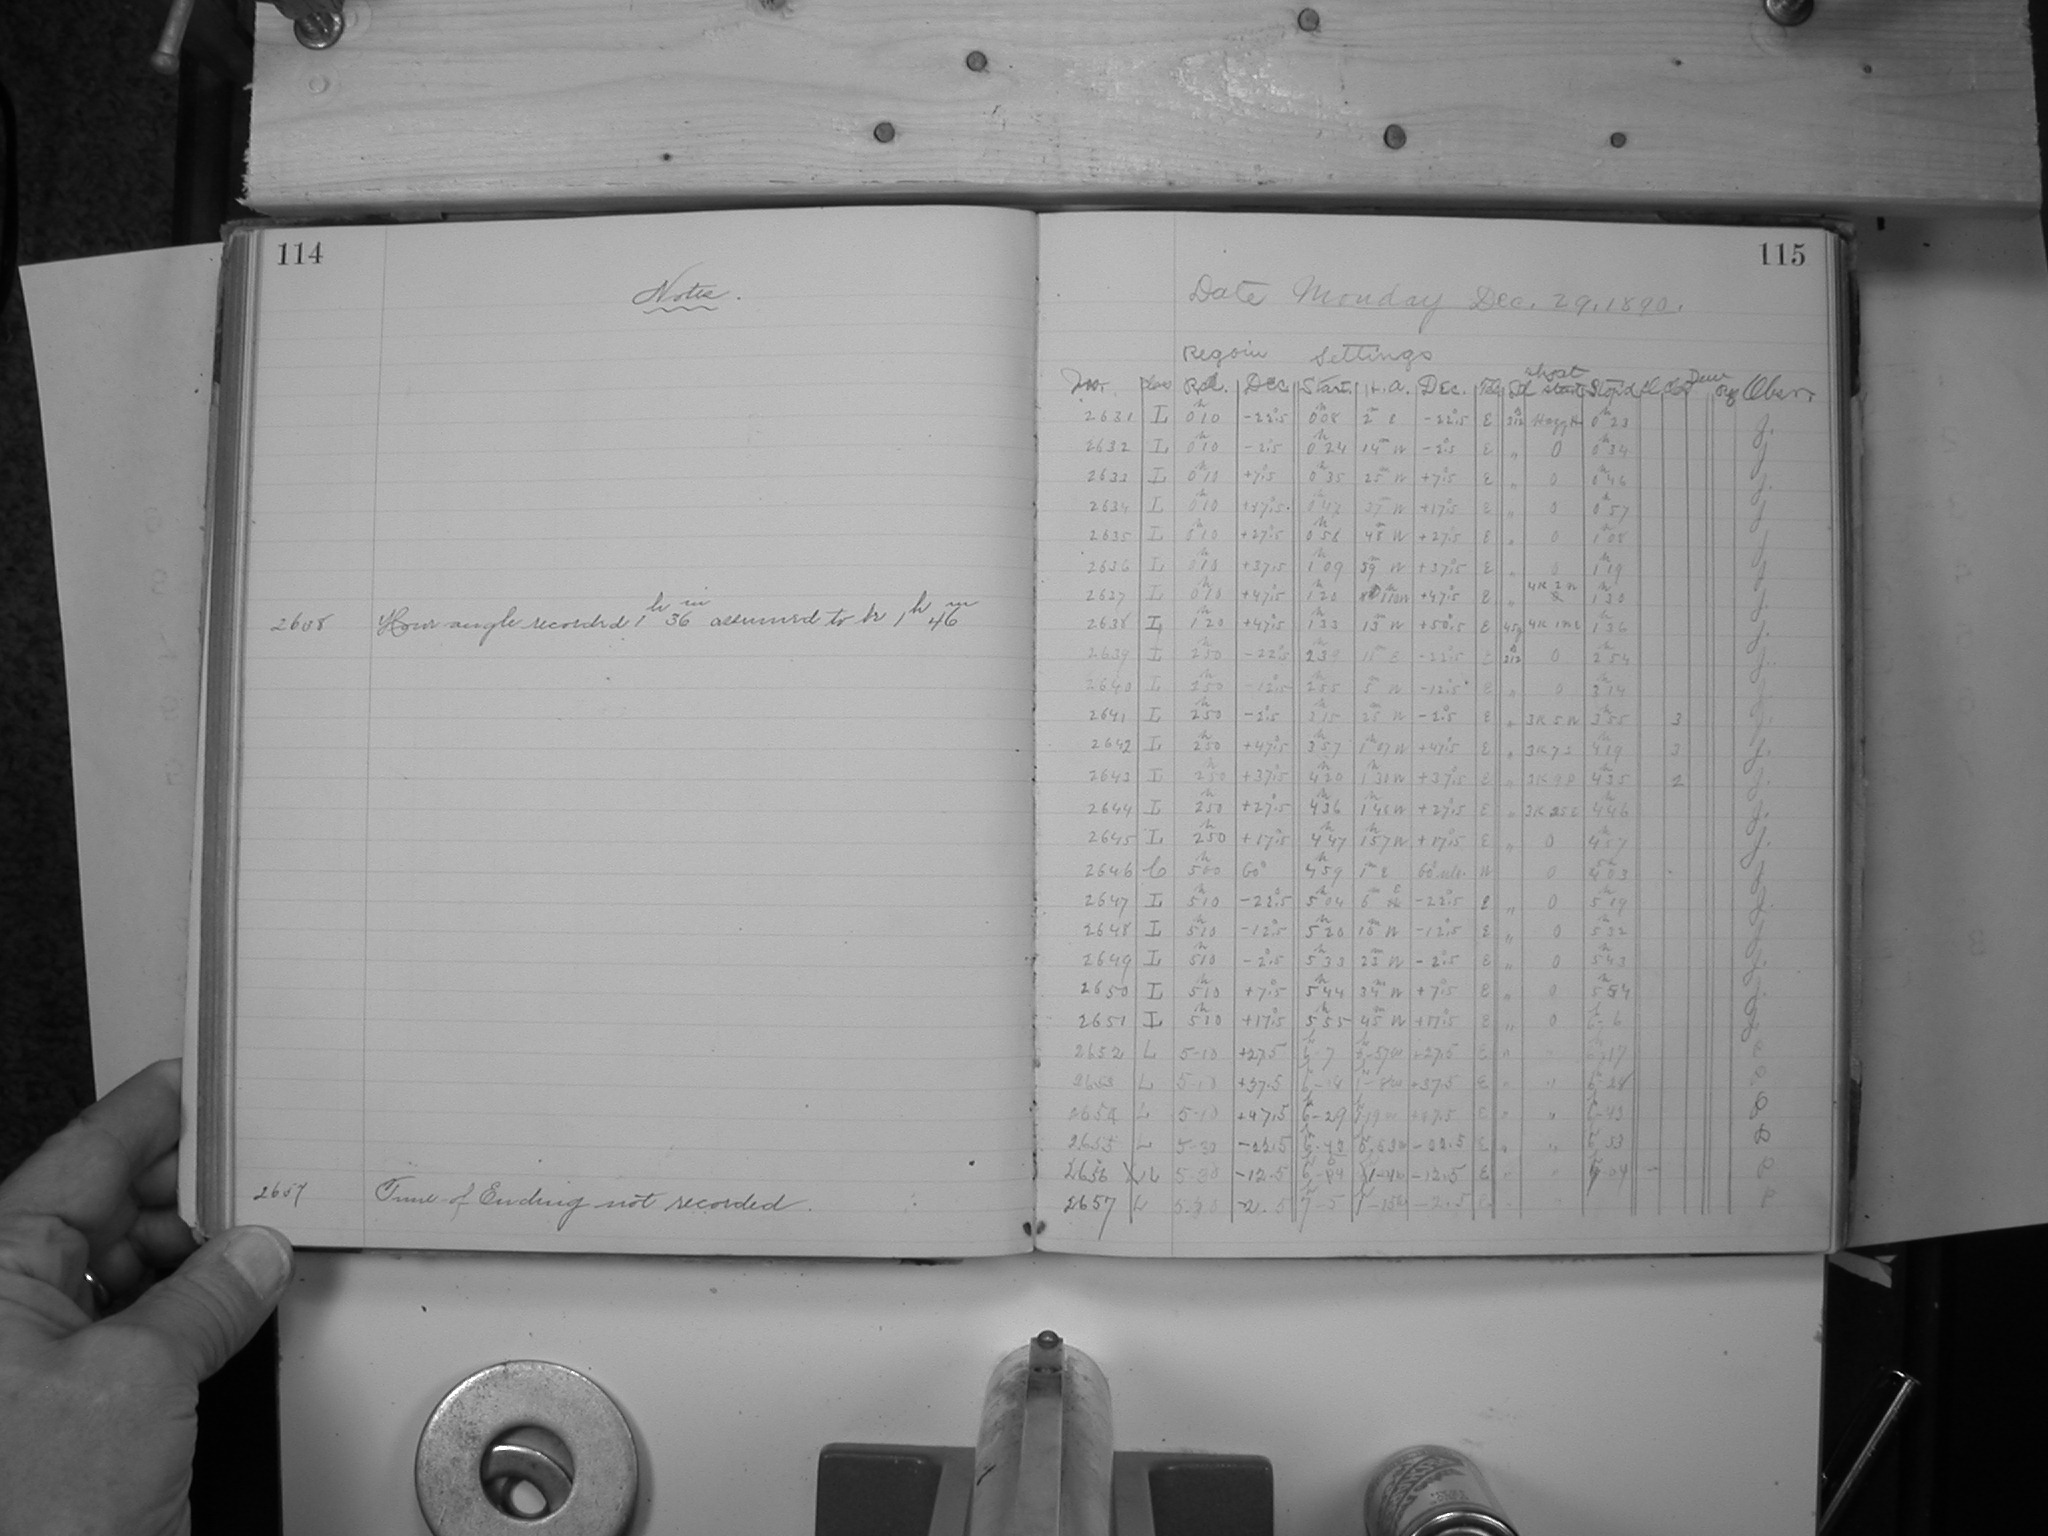 114
Notes.
2608 Hour angle recorded 1h 36m assumed to be 1h 46m
2657 Time of Ending not recorded.
115
Date Monday Dec. 29, 1890.
Region Settings
No. R.A. Dec. Start. H.A. Dec. Obsr.
2631 L 0h10 -22°.5 0h08 2m E -22°.5 E Hazy 0h23 J.
2632 L 0h10 -2°.5 0h24 14m W -2°.5 E " 0 0h34 J.
2633 L 0h10 +7°.5 0h35 25m W +7°.5 E " 0 0h46 J.
2634 L 0h10 +17°.5 0h47 37m W +17°.5 E " 0 0h57 J.
2635 L 0h10 +27°.5 0h58 48m W +27°.5 E " 0 1h08 J.
2636 L 0h10 +37°.5 1h09 59m W +37°.5 E " 0 1h19 J.
2637 L 0h10 +47°.5 1h20 +47°.5 E " 1h30 J.
2638 L 1h20 +47°.5 1h33 13m W +50°.5 E 1h36 J.
2639 L 2h50 -22°.5 2h39 11m E -22°.5 E 0 2h54 J.
2640 L 2h50 -12°.5 2h55 5m W -12°.5 E " 0 3h14 J.
2641 L 2h50 -2°.5 3h15 25m W -2°.5 E " 3h55 3 J.
2642 L 2h50 +47°.5 3h57 1h07 W +47°.5 E " 4h19 3 J.
2643 L 2h50 +37°.5 4h20 1h30 W +37°.5 E " 4h35 2 J.
2644 L 2h50 +27°.5 4h36 1h46 W +27°.5 E " 4h46 J.
2645 L 2h50 +17°.5 4h47 1h57 W +17°.5 E " 0 4h57 J.
2646 C 5h00 60° 4h59 1m E 60° W 0 J.
2647 L 5h10 -22°.5 5h04 6m E -22°.5 E " 0 5h19 J.
2648 L 5h10 -12°.5 5h20 10m W -12°.5 E " 0 5h32 J.
2649 L 5h10 -2°.5 5h33 23m W -2°.5 E " 0 5h43 J.
2650 L 5h10 +7°.5 5h44 34m W +7°.5 E " 0 5h54 J.
2651 L 5h10 +17°.5 5h55 45m W +17°.5 E " 0 6h 6 J.
2652 L 5-10 +27.5 6h-7 +27.5 E " " 6h17
2653 L 5-10 +37.5 +37.5 E " " 6h-28
2654 L 5-10 +47.5 6h-29 +47.5 E " " 6h-43
2655 L 5-30 -22.5 -22.5 E " " 6h53
2656 L 5-30 -12.5 -12.5 E " "
2657 L 5-30 -2.5 7-5 -2.5 E " " P